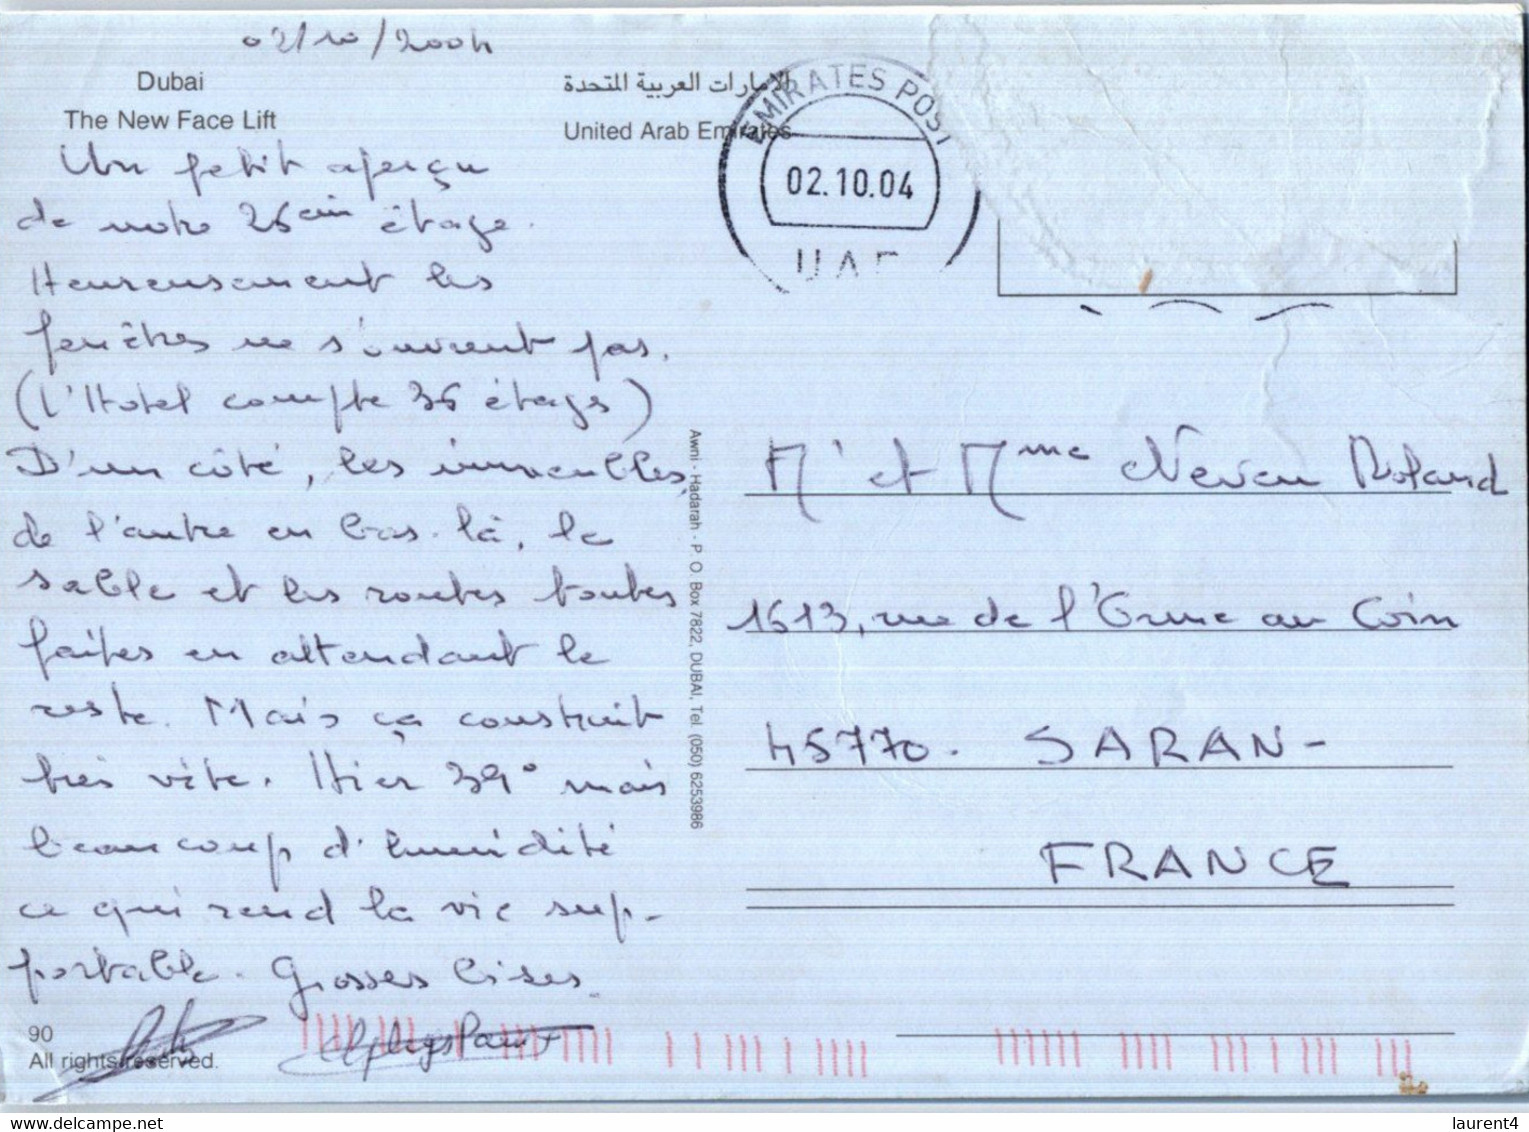 02/10/2004
Dubai
The New Face Lift
الإمارات العربية المتحدة
United Arab Emirates
EMIRATES POST
02.10.04
UAE
Un petit aperçu
de notre 26ème étage.
Heureusement les
fenêtres ne s'ouvrent pas.
(l'Hotel compte 36 étages)
D'un côté, les immeubles,
de l'autre en bas là, le
sable et les routes toutes
faites en attendant le
reste. Mais ça construit
très vite. Hier 39° mais
beaucoup d'humidité
ce qui rend la vie sup-
portable. Grosses bises.
Awni - Hadarah - P. O. Box 7822, DUBAI. Tel. (050) 6253986
Mr et Mme Neveu Roland
1613, rue de l'Orme au Coin
45770. SARAN-
FRANCE
90
All rights reserved.
www.delcampe.net
laurent4